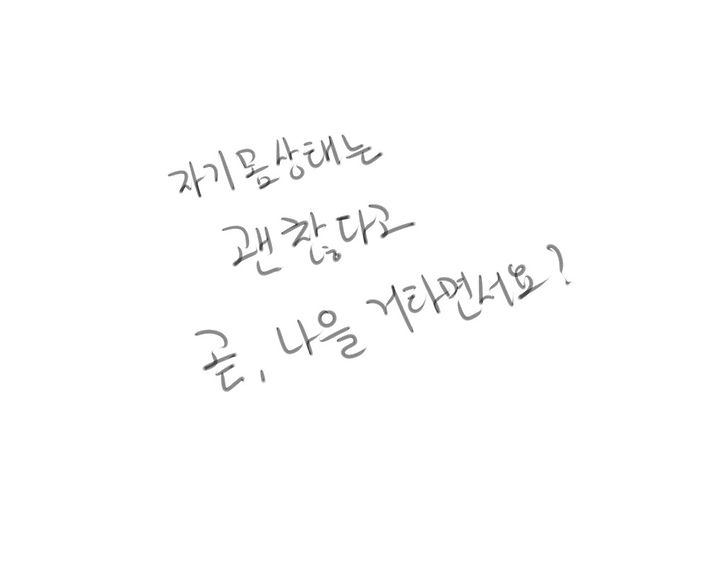 자기몸상태는
괜찮다고
곧, 나을 거라면서요?